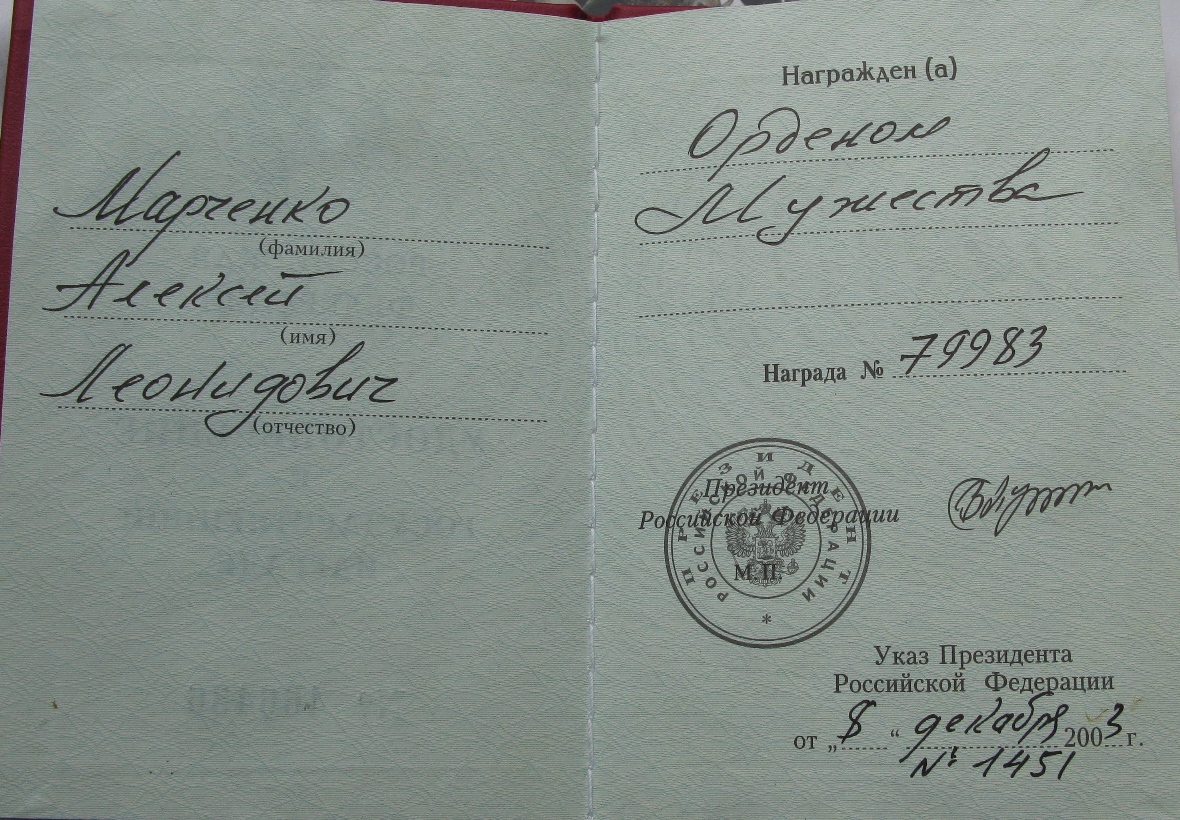 Марченко
(фамилия)
Алексей
(имя)
Леонидович
(отчество)
Награжден (а)
Орденом
Мужества
Награда № 79983
Президент
Российской Федерации
М.П.
ПРЕЗИДЕНТ
РОССИЙСКОЙ ФЕДЕРАЦИИ
*
Указ Президента
Российской Федерации
от „8“ декабря 2003 г.
№ 1451